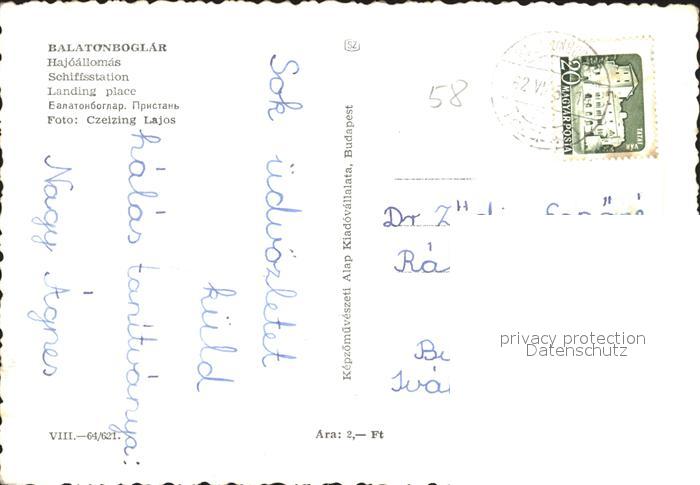 BALATONBOGLÁR
Hajóállomás
Schiffsstation
Landing place
Балатонбоглар. Пристань
Foto: Czeizing Lajos
Sok üdvözletet
küld
hálás tanítványa:
Nagy Ágnes
VIII.—64/621.
Ára: 2,— Ft
Képzőművészeti Alap Kiadóvállalata, Budapest
SZ
58
20
MAGYAR POSTA
TATAI VÁR
Dr
Rá
Ivá
privacy protection
Datenschutz